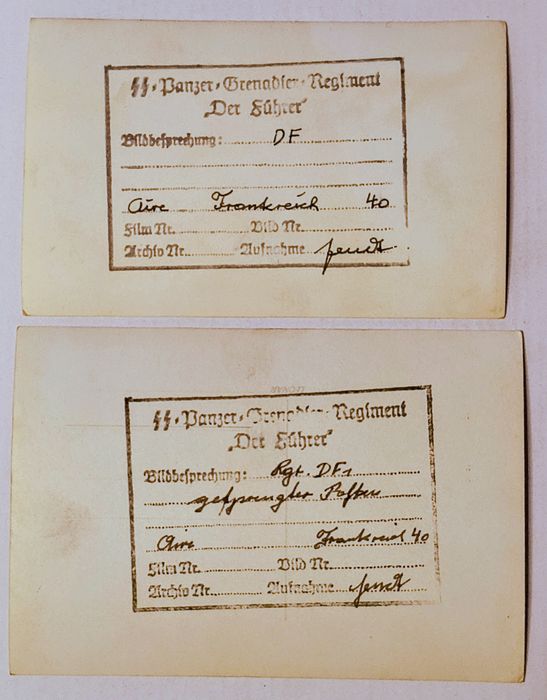 SS-Panzer-Grenadier-Regiment
„Der Führer“
Bildbesprechung: DF
Aire Frankreich 40
Film Nr. Bild Nr.
Archiv Nr. Aufnahme
SS-Panzer-Grenadier-Regiment
„Der Führer“
Bildbesprechung: Rgt. DF
gesprengter
Aire Frankreich 40
Film Nr. Bild Nr.
Archiv Nr. Aufnahme